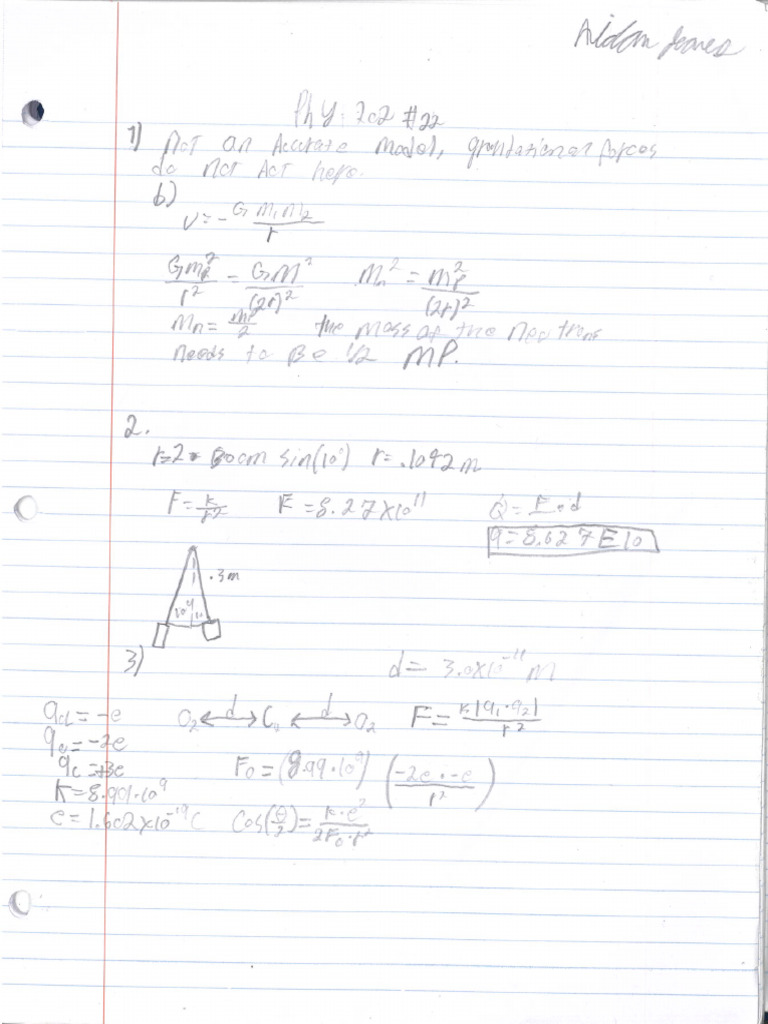 Aidan Jones
Phy: 202 #22
1) Not an Accurate model, gravitational forces
do not Act here.
b)
V = - G m₁ m₂ / r
G m_p² / r² = G M² / (2r)²   m_n² = m_p² / (2r)²
m_n = m_p / 2   the mass of the neutrons
needs to Be 1/2 MP.
2.
r=2 • 30cm sin(10°)   r = .1042m
F = k / r²   F = 8.27 x 10¹¹   Q = F • d
q = 8.627 E 10
.3m
10°
3)   d = 3.0x10⁻¹¹ m
q_cl = -e   O₂ ↔ d C₄ ↔ d O₂   F = k|q₁·q₂| / r²
q_o = -2e
q_c = +3e   F₀ = (8.99·10⁹) (-2e · -e / r²)
K = 8.99·10⁹
e = 1.602 x 10⁻¹⁹ C   Cos(θ/2) = k·e² / 2F₀·r²